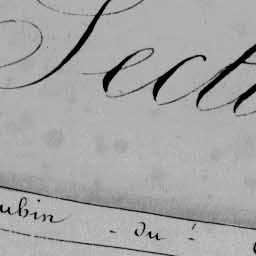 Secti
ubin - Du :